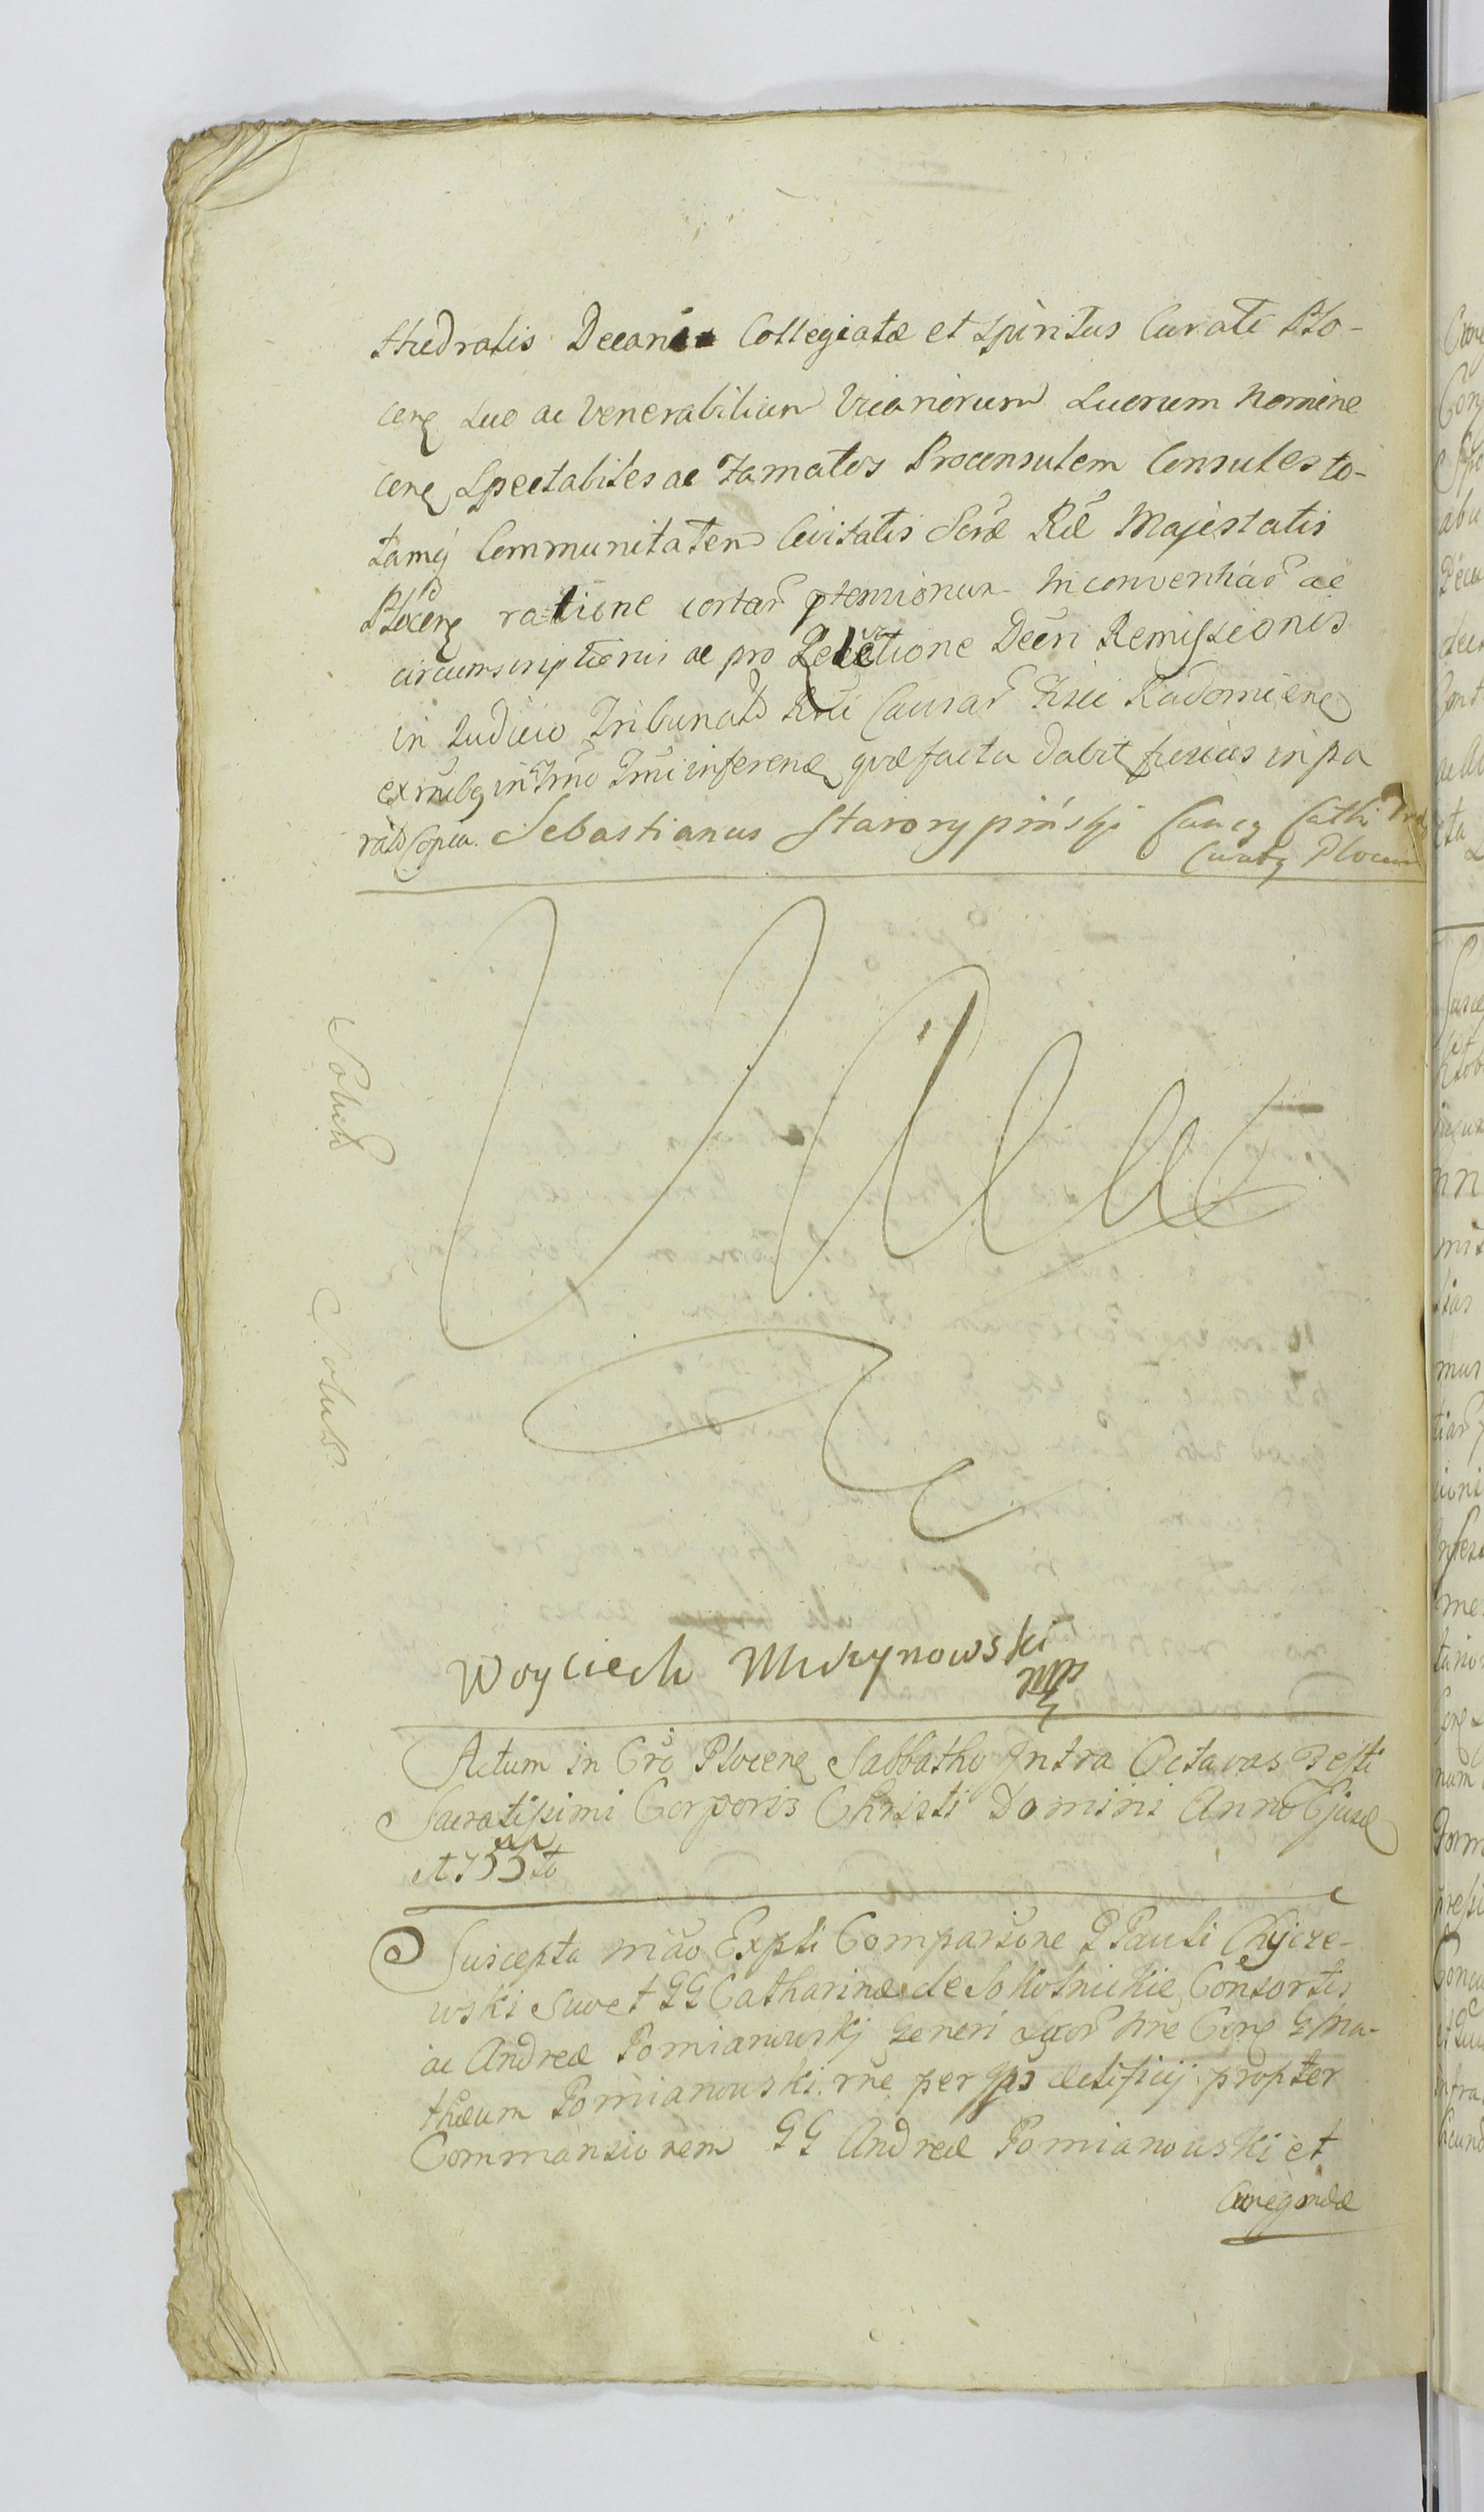 thedralis Decani Collegiatæ et Spiritus Curati Plo-
ceñ Suo ac Venerabilium Vicariorum Suorum nomine
ceñ Spectabiles ac Famatos Proconsulem Consules to-
tamq Communitatem Civitatis Scræ Ræ Majestatis
Ploceñ ratione certar ptensionum Inconvenhar ac
circumscriptionis ac pro Decři Remissionis
in Iudicio Tribunat Rni Causar Fisci Radomieñ
ex in Tmo Tmi infereñ quæ facta dabit fusius in pa
rato Copia. Sebastianus Starorypiński Cathedra
Curatq Plocen
Solvit
Solvit
Woyciech Mdzynowski
mpp
Actum in Cřo Ploceñ Sabbatho Intra Octavas Festi
Sacratissimi Corporis Christi Domini Anno Ejusd
1755to
Suscepta Expti Comparitione G Pauli Chycze-
wski Suo et GG Catharinæ de Sokolnickie Consortis
ac Andreæ Pomianowskj Generi Suor nře Conp G Ma-
thæum Pomianowski rne per Ips ædificij propter
Commansionem GG Andreæ Pomianowski et
Cunegundæ